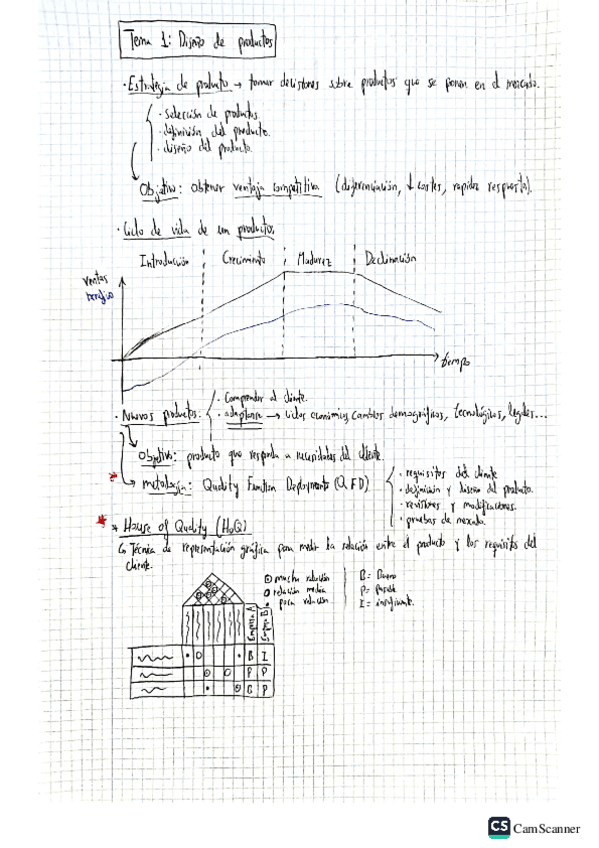 Tema 1: Diseño de productos
· Estrategia de producto → tomar decisiones sobre productos que se ponen en el mercado.
· selección de productos.
· definición del producto.
· diseño del producto.
Objetivo: obtener ventaja competitiva (diferenciación, ↓ costes, rapidez respuesta).
· Ciclo de vida de un producto.
Introducción Crecimiento Madurez Declinación
ventas
beneficio
tiempo
· Comprender al cliente.
· Nuevos productos: · adaptarse → ciclos económicos, cambios demográficos, tecnológicos, legales...
Objetivo: producto que responda a necesidades del cliente.
* → metología: Quality Function Deployment (QFD)
· requisitos del cliente
· definición y diseño del producto.
· revisiones y modificaciones.
· pruebas de mercado.
* * House of Quality (HoQ)
Técnica de representación gráfica para medir la relación entre el producto y los requisitos del
cliente.
mucha relación
relación media
poca relación
B = Bueno
P = Posible
I = insuficiente.
Empresa A
Empresa B
B I
P P
P